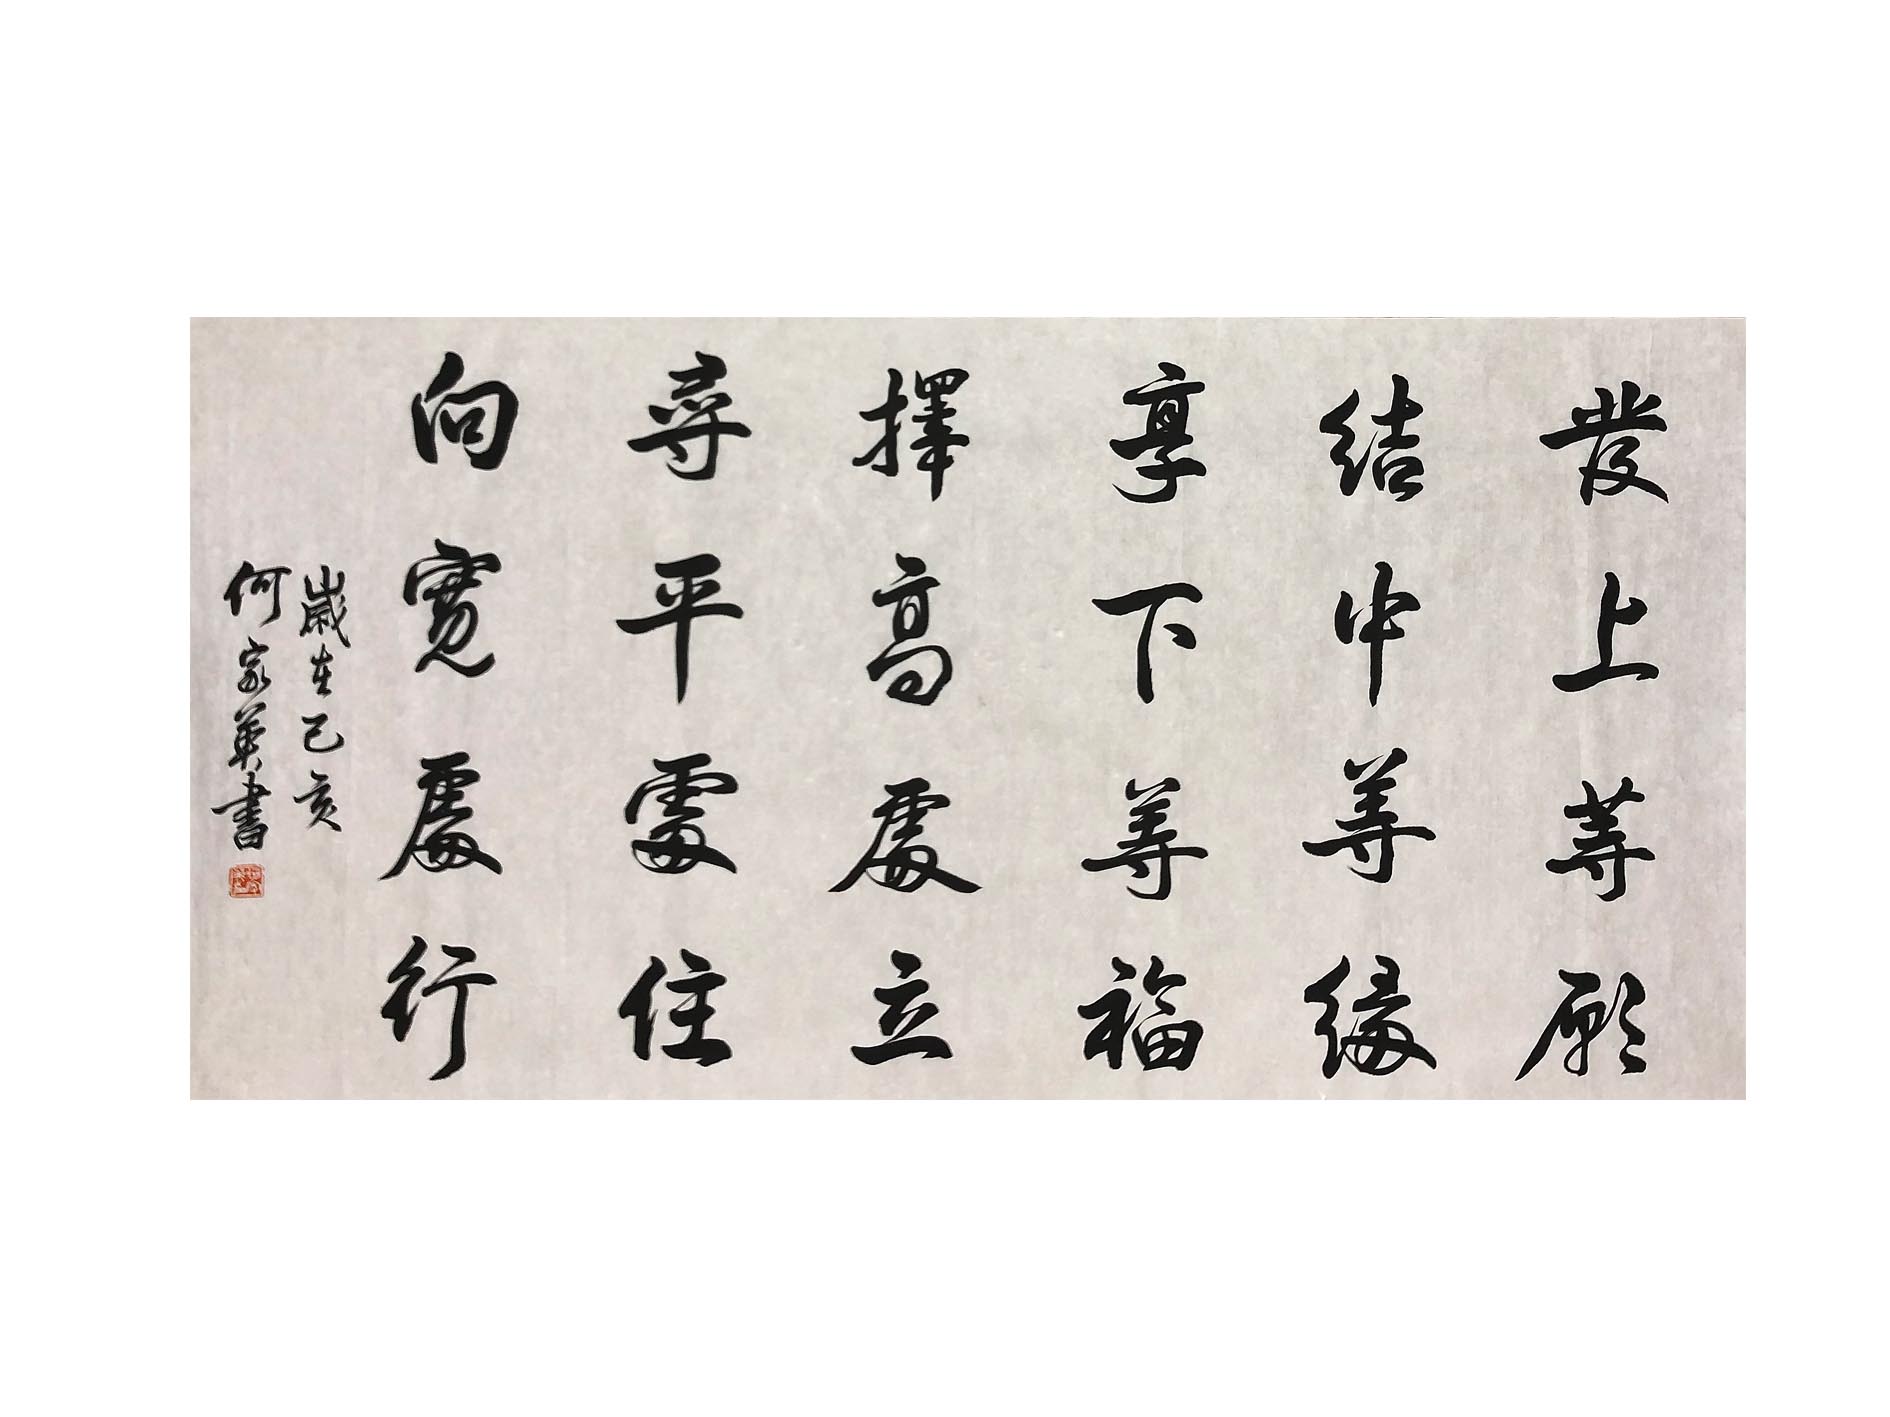 發上等願
結中等緣
享下等福
擇高處立
尋平處住
向寬處行
歲在己亥
何家英書